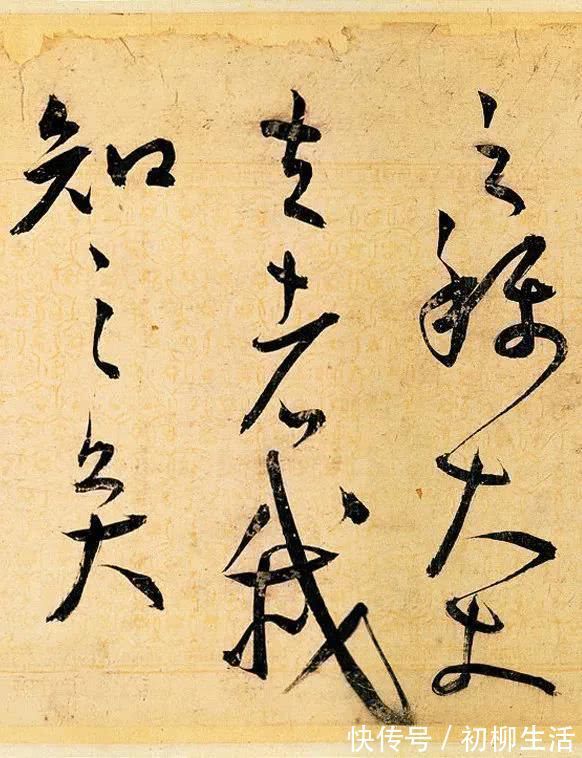 之稱大丈
夫者我
知之矣
快传号 / 初柳生活